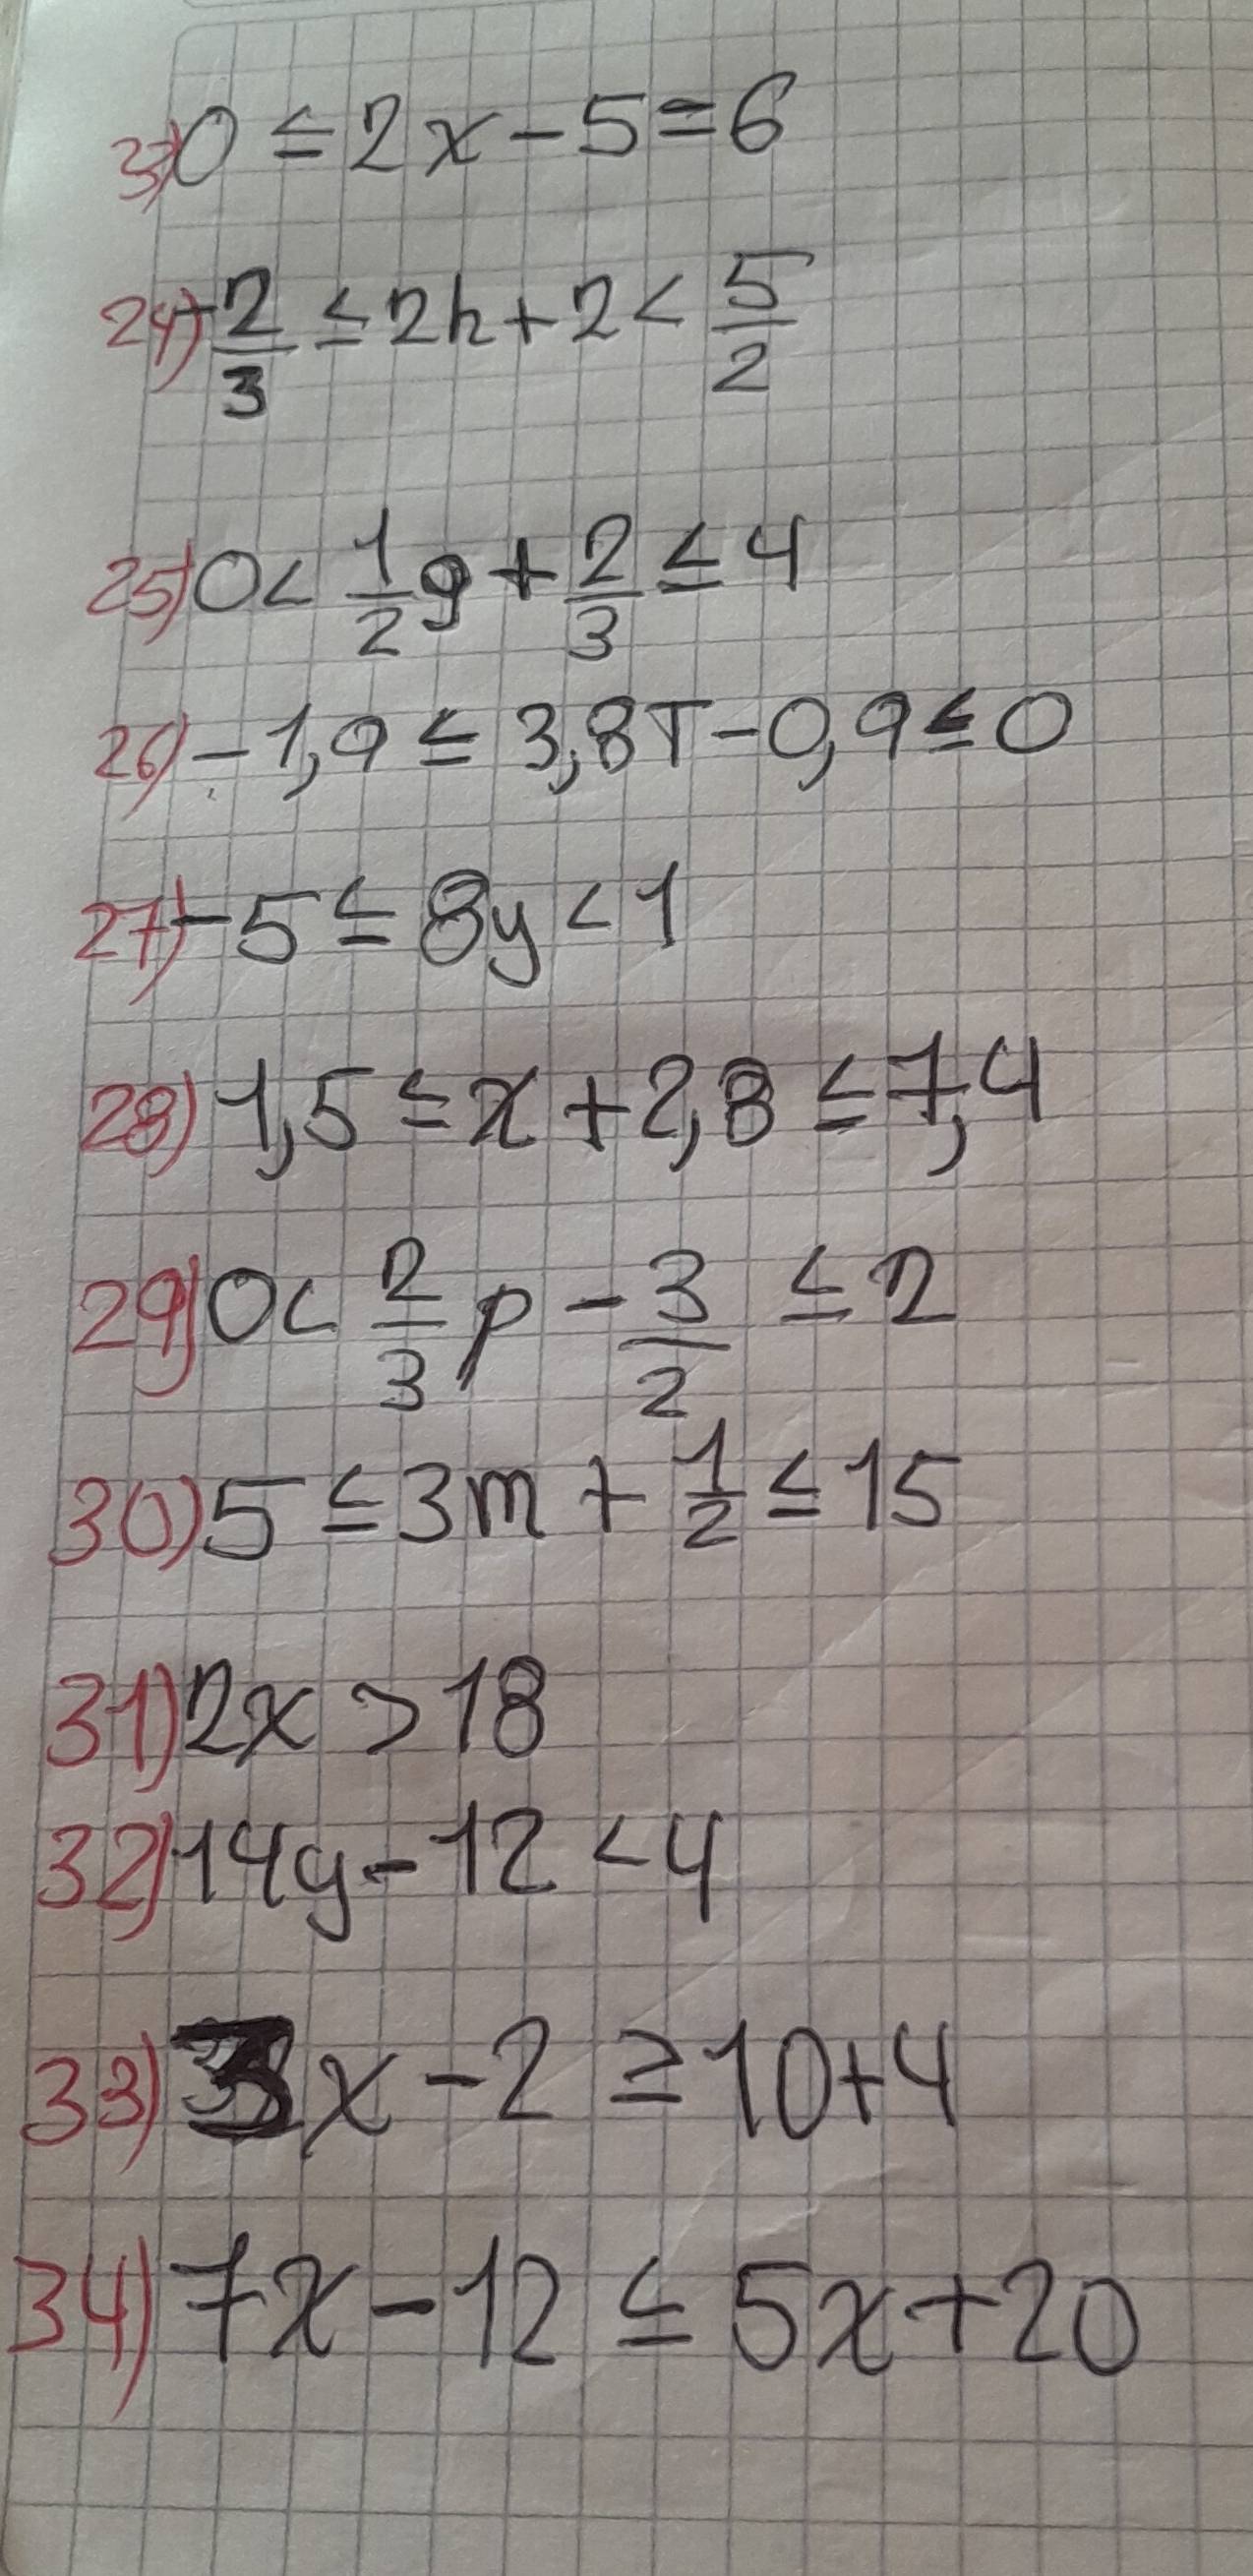 23) 0 ≤ 2x - 5 = 6
24) -2/3 ≤ 2h + 2 < 5/2
25) 0 < 1/2 g + 2/3 ≤ 4
26) -1,9 ≤ 3,8T - 0,9 ≤ 0
27) -5 ≤ 8y < 1
28) 1,5 ≤ x + 2,8 ≤ 7,4
29) 0 < 2/3 p - 3/2 ≤ 2
30) 5 ≤ 3m + 1/2 ≤ 15
31) 2x > 18
32) 14y - 12 < 4
33) 3x - 2 ≥ 10 + 4
34) 7x - 12 ≤ 5x + 20